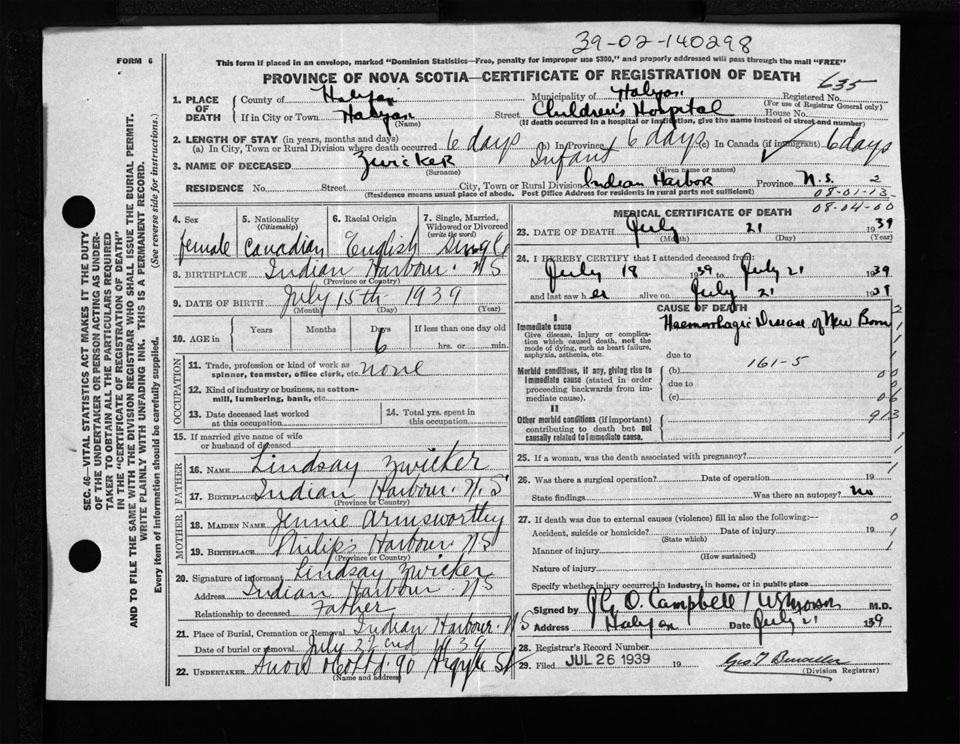 39-02-140298
FORM 6
This form if placed in an envelope, marked "Dominion Statistics—Free, penalty for improper use $300," and properly addressed will pass through the mail "FREE"
PROVINCE OF NOVA SCOTIA—CERTIFICATE OF REGISTRATION OF DEATH
635
1. PLACE OF DEATH
County of Halifax Municipality of Halifax Registered No.
(For use of Registrar General only)
If in City or Town Halifax Street Children's Hospital House No.
(Name) (If death occurred in a hospital or institution, give the name instead of street and number)
2. LENGTH OF STAY (in years, months and days)
(a) In City, Town or Rural Division where death occurred 6 days (b) In Province 6 days (c) In Canada (if immigrant) 6 days
3. NAME OF DECEASED Zwicker Infant
(Surname) (Given name or names)
RESIDENCE No. Street City, Town or Rural Division Indian Harbor Province N.S. 2
(Residence means usual place of abode. Post Office Address for residents in rural parts not sufficient)
08-01-13
08-04-00
SEC. 46—VITAL STATISTICS ACT MAKES IT THE DUTY
OF THE UNDERTAKER OR PERSON ACTING AS UNDER-
TAKER TO OBTAIN ALL THE PARTICULARS REQUIRED
IN THE "CERTIFICATE OF REGISTRATION OF DEATH"
AND TO FILE THE SAME WITH THE DIVISION REGISTRAR WHO SHALL ISSUE THE BURIAL PERMIT.
WRITE PLAINLY WITH UNFADING INK. THIS IS A PERMANENT RECORD.
Every item of information should be carefully supplied. (See reverse side for instructions.)
4. Sex 5. Nationality (Citizenship) 6. Racial Origin 7. Single, Married, Widowed or Divorced (write the word)
female Canadian English Single
8. BIRTHPLACE Indian Harbour. NS
(Province or Country)
9. DATE OF BIRTH July 15th 1939
(Month) (Day) (Year)
10. AGE in Years Months Days If less than one day old
6 hrs. or min.
OCCUPATION
11. Trade, profession or kind of work as
spinner, teamster, office clerk, etc. none
12. Kind of industry or business, as cotton-
mill, lumbering, bank, etc.
13. Date deceased last worked
at this occupation
14. Total yrs. spent in
this occupation
15. If married give name of wife
or husband of deceased
FATHER
16. NAME Lindsay Zwicker
17. BIRTHPLACE Indian Harbour. N.S.
(Province or Country)
MOTHER
18. MAIDEN NAME Jennie Armsworthy
19. BIRTHPLACE Philip's Harbour. NS
(Province or Country)
20. Signature of informant Lindsay Zwicker
Address Indian Harbour. NS
Relationship to deceased Father
21. Place of Burial, Cremation or Removal Indian Harbour. NS
Date of burial or removal July 22nd 1939
22. UNDERTAKER Snow 90 Argyle St
(Name and address)
MEDICAL CERTIFICATE OF DEATH
23. DATE OF DEATH July 21 1939
(Month) (Day) (Year)
24. I HEREBY CERTIFY that I attended deceased from:
July 18 1939 to July 21 1939
and last saw her alive on July 21 1939
CAUSE OF DEATH
I
Immediate cause
Give disease, injury or complica-
tion which caused death, not the
mode of dying, such as heart failure,
asphyxia, asthenia, etc.
Haemorrhagic Disease of New Born
due to
Morbid conditions, if any, giving rise to
immediate cause (stated in order
proceeding backwards from im-
mediate cause).
(b) 161-5
due to
(c)
II
Other morbid conditions (if important)
contributing to death but not
causally related to immediate cause.
00
06
913
25. If a woman, was the death associated with pregnancy?
26. Was there a surgical operation? Date of operation 19
State findings Was there an autopsy? No
27. If death was due to external causes (violence) fill in also the following:—
Accident, suicide or homicide? Date of injury 19
(State which)
Manner of injury
(How sustained)
Nature of injury
Specify whether injury occurred in industry, in home, or in public place
Signed by G. O. Campbell / M.D.
Address Halifax Date July 21 1939
28. Registrar's Record Number
29. Filed JUL 26 1939 19
(Division Registrar)